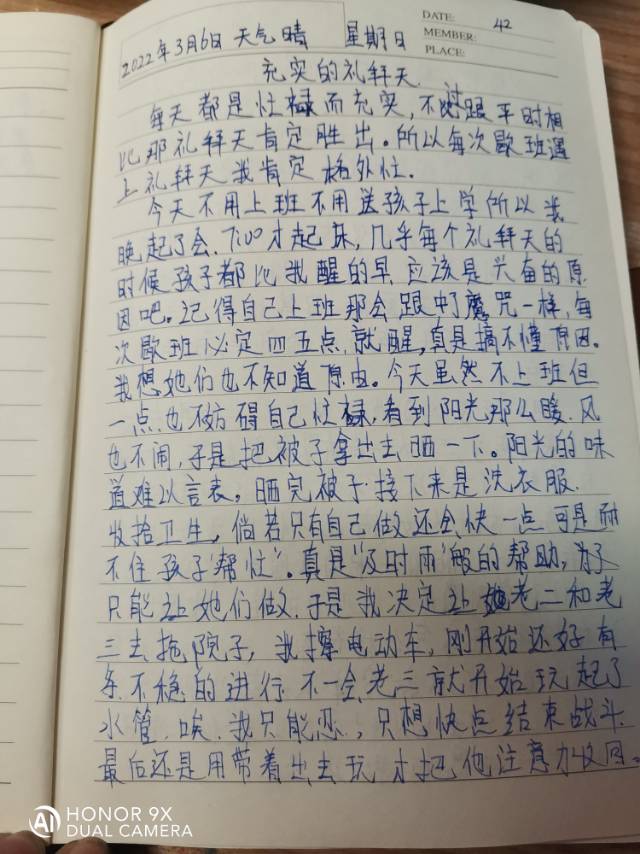 DATE: 42
MEMBER:
PLACE:
2022年3月6日 天气晴 星期日
充实的礼拜天
每天都是忙碌而充实,不过跟平时相
比那礼拜天肯定胜出。所以每次歇班遇
上礼拜天我肯定格外忙.
今天不用上班不用送孩子上学所以半
晚起了会.7:00才起床,几乎每个礼拜天的
时候孩子都比我醒的早 应该是兴奋的原
因吧。记得自己上班那会跟中了魔咒一样,每
次歇班必定四五点就醒,真是搞不懂原因。
我想她们也不知道原由。今天虽然不上班但
一点也不妨碍自己忙碌,看到阳光那么暖.风
也不闹,于是把被子拿出去晒一下。阳光的味
道难以言表。晒完被子接下来是洗衣服.
收拾卫生,倘若只有自己做还会快一点可是耐
不住孩子"帮忙"。真是"及时雨"般的帮助,为了
只能让她们做.于是我决定让老二和老
三去拖院子,我擦电动车,刚开始还好有
条不稳的进行 不一会老三就开始玩起了
水管.唉.我只能忍,只想快点结束战斗.
最后还是用带着出去玩才把他注意力收回。
HONOR 9X
AI DUAL CAMERA